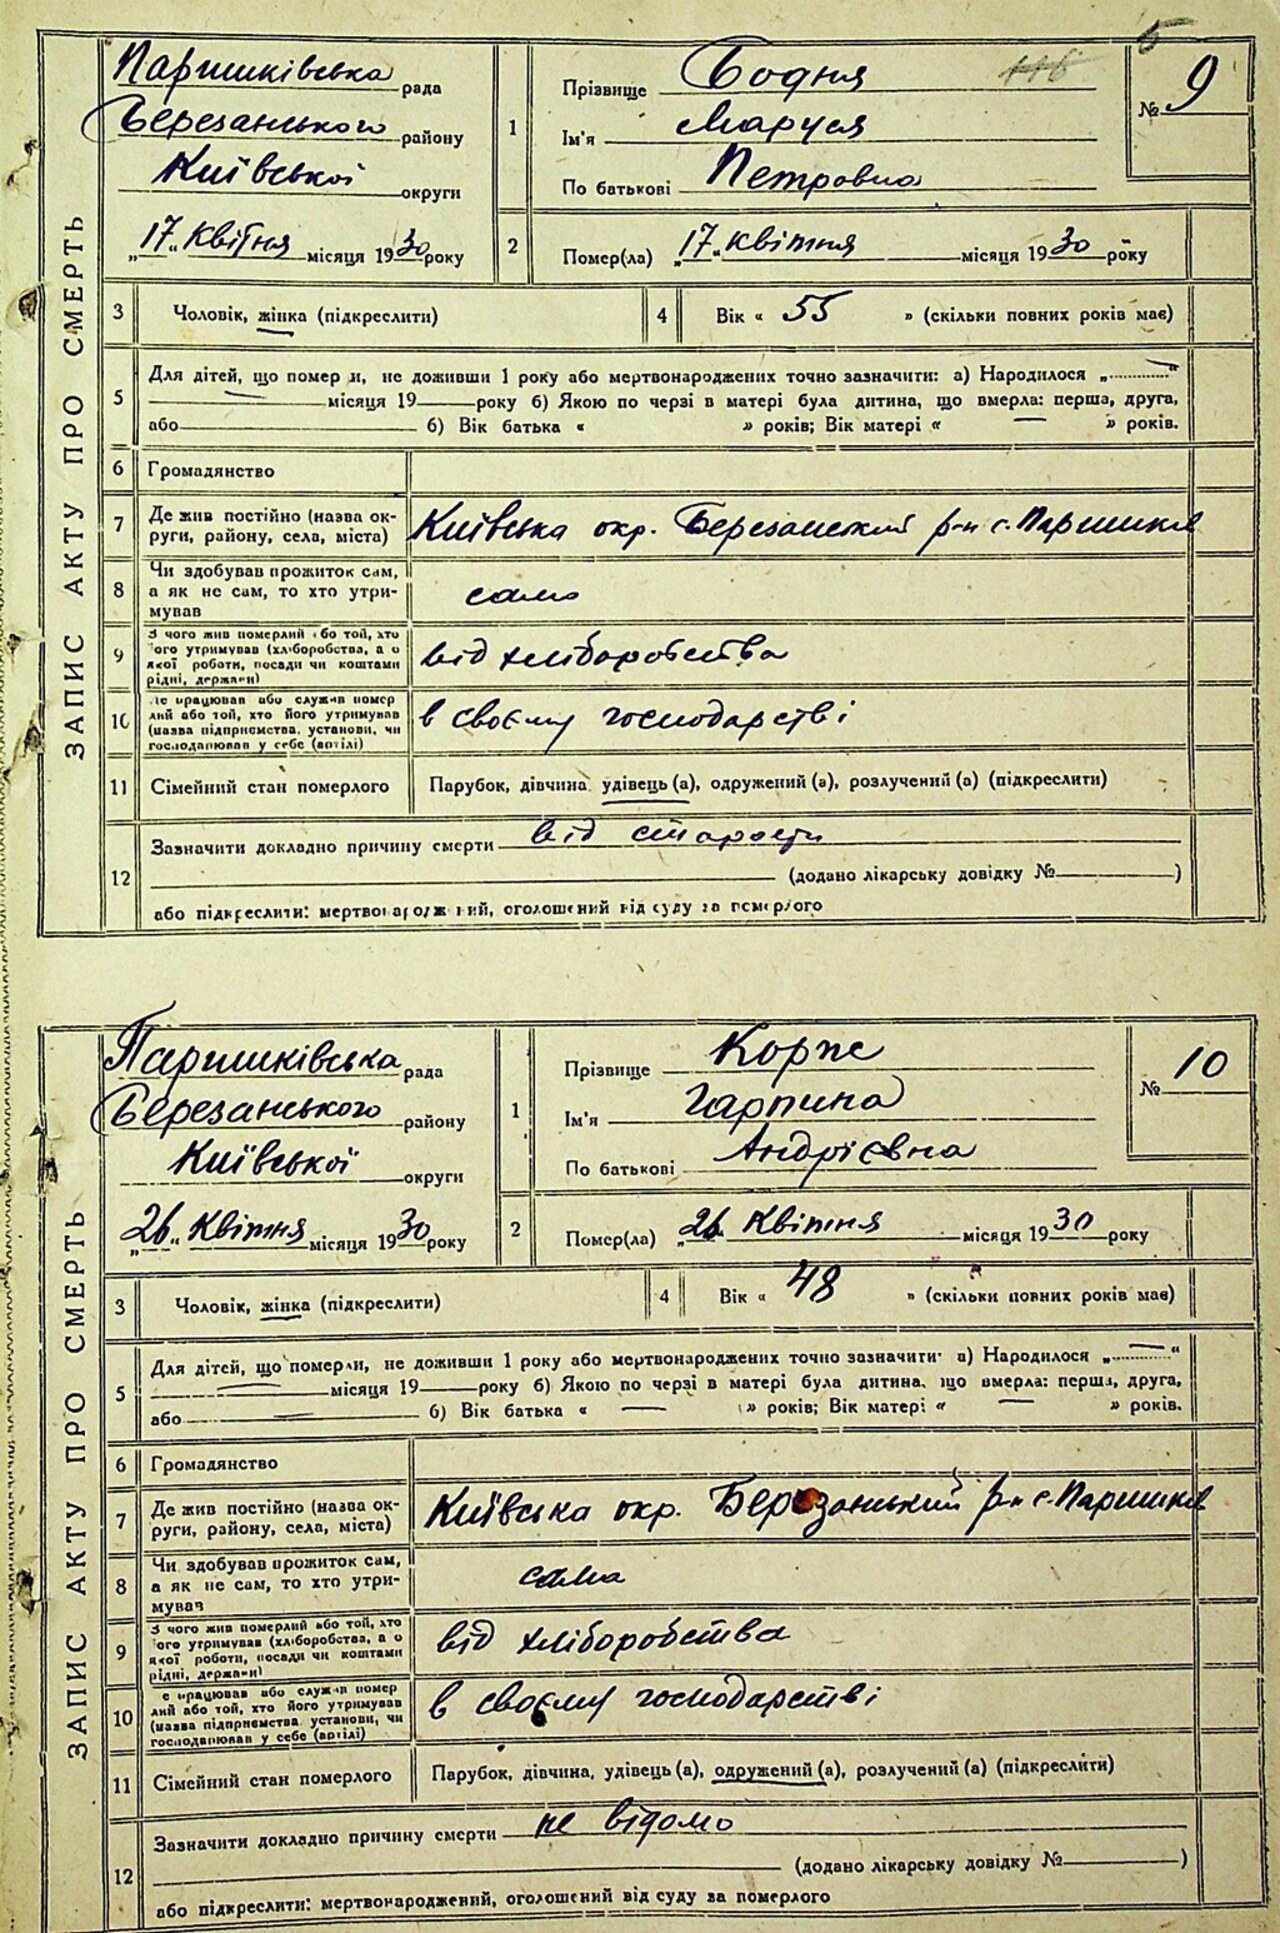 5
ЗАПИС АКТУ ПРО СМЕРТЬ
Паришківська рада
Березанського району
Київської округи
„17“ квітня місяця 1930 року
1
Прізвище Бодня
116
Ім'я Маруся
По батькові Петровна
№ 9
2
Помер(ла) „17“ квітня місяця 1930 року
3 Чоловік, жінка (підкреслити)
4 Вік « 55 » (скільки повних років має)
5 Для дітей, що померли, не доживши 1 року або мертвонароджених точно зазначити: а) Народилося „—“
— місяця 19— року б) Якою по черзі в матері була дитина, що вмерла: перша, друга,
або — 6) Вік батька « » років; Вік матері « — » років.
6 Громадянство
7 Де жив постійно (назва ок-
руги, району, села, міста)
Київська окр. Березанский р-н с. Паришків
8 Чи здобував прожиток сам,
а як не сам, то хто утри-
мував
само
9 З чого жив померлий або той, хто
його утримував (хліборобства, а о
якої роботи, посади чи коштами
рідні, держави)
від хліборобства
10 Де працював або служив помер
лий або той, хто його утримував
(назва підприємства, установи, чи
господарював у себе (артілі)
в своєму господарстві
11 Сімейний стан померлого
Парубок, дівчина, удівець (а), одружений (а), розлучений (а) (підкреслити)
12 Зазначити докладно причину смерти від старости
(додано лікарську довідку № )
або підкреслити: мертвонароджений, оголошений від суду за померлого
ЗАПИС АКТУ ПРО СМЕРТЬ
Паришківська рада
Березанського району
Київської округи
„26“ Квітня місяця 1930 року
1
Прізвище Корж
Ім'я Гарпина
По батькові Андрієвна
№ 10
2
Помер(ла) „26“ Квітня місяця 1930 року
3 Чоловік, жінка (підкреслити)
4 Вік « 48 » (скільки повних років має)
5 Для дітей, що померли, не доживши 1 року або мертвонароджених точно зазначити: а) Народилося „—“
— місяця 19— року б) Якою по черзі в матері була дитина, що вмерла: перша, друга,
або — 6) Вік батька « — » років; Вік матері « — » років.
6 Громадянство
7 Де жив постійно (назва ок-
руги, району, села, міста)
Київська окр. Березанький р-н с. Паришків
8 Чи здобував прожиток сам,
а як не сам, то хто утри-
мував
сама
9 З чого жив померлий або той, хто
його утримував (хліборобства, а о
якої роботи, посади чи коштами
рідні, держави)
від хліборобства
10 Де працював або служив помер
лий або той, хто його утримував
(назва підприємства, установи, чи
господарював у себе (артілі)
в своєму господарстві
11 Сімейний стан померлого
Парубок, дівчина, удівець (а), одружений (а), розлучений (а) (підкреслити)
12 Зазначити докладно причину смерти не відомо
(додано лікарську довідку № )
або підкреслити: мертвонароджений, оголошений від суду за померлого